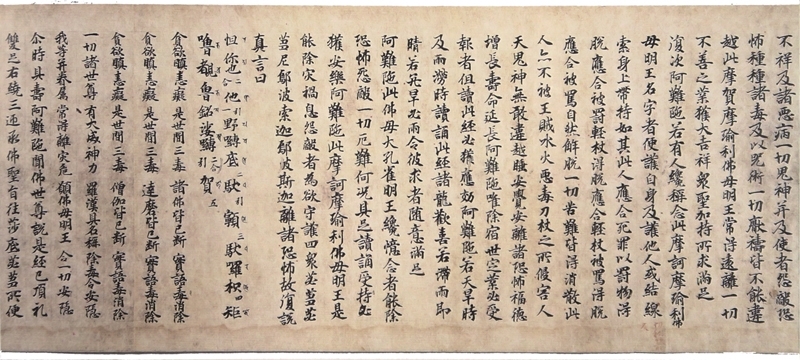 不祥及諸惡病一切鬼神并及使者怨敵恐
怖種種諸毒及以呪術一切厭禱皆不能違
越此摩賀摩瑜利佛母明王常得遠離一切
不善之業獲大吉祥眾聖加持所求滿足
復次阿難陁若有人纔稱念此摩訶瑜利佛
母明王名字者便護自身及護他人或結線
索身上帶持如其此人應合死罪以罰物得
脫應合被罰輕杖得脫應合輕杖被罵得脫
應合被罵自然解脫一切苦難皆得消散此
人亦不被王賊水火惡毒刀杖之所侵害人
天鬼神無敢違越睡安覺安離諸恐怖福德
增長壽命延長阿難陁唯除宿世定業必受
報者但讀此經必獲應効阿難陁若天旱時
及雨澇時讀誦此經諸龍歡喜若滯雨即
晴若亢旱必雨令彼求者隨意滿足
阿難陁此佛母大孔雀明王纔憶念者能除
恐怖怨敵一切厄難何況具足讀誦受持必
獲安樂阿難陁此摩訶摩瑜利佛母明王是
能除灾禍息怨敵者為欲守護四眾苾芻苾
芻尼鄔波索迦鄔波斯迦離諸恐怖故復說
真言曰
怛你也二合他引野嚩底二馱引三馱羅枳四矩
嚕覩嚕銘娑嚩二合引賀五
貪欲瞋恚癡 是世間三毒 諸佛皆已斷 實語毒消除
貪欲瞋恚癡 是世間三毒 達磨皆已斷 實語毒消除
貪欲瞋恚癡 是世間三毒 僧伽皆已斷 實語毒消除
一切諸世尊 有大威神力 羅漢具名稱 除毒令安隱
我等并眷屬 常得離灾厄 願佛母明王 令一切安隱
尒時具壽阿難陁聞佛世尊說是經已頂礼
雙足右繞三匝承佛聖旨往莎底苾芻所便